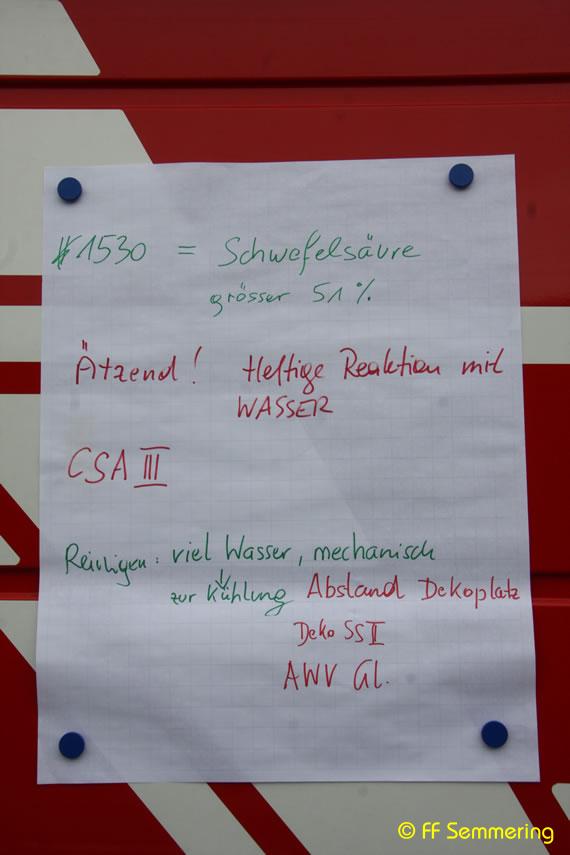 1530 = Schwefelsäure
grösser 51 %
Ätzend! Heftige Reaktion mit
WASSER
CSA III
Reinigen: viel Wasser, mechanisch
↓
zur Kühlung Abstand Dekoplatz
Deko SS II
AWV Gl.
© FF Semmering